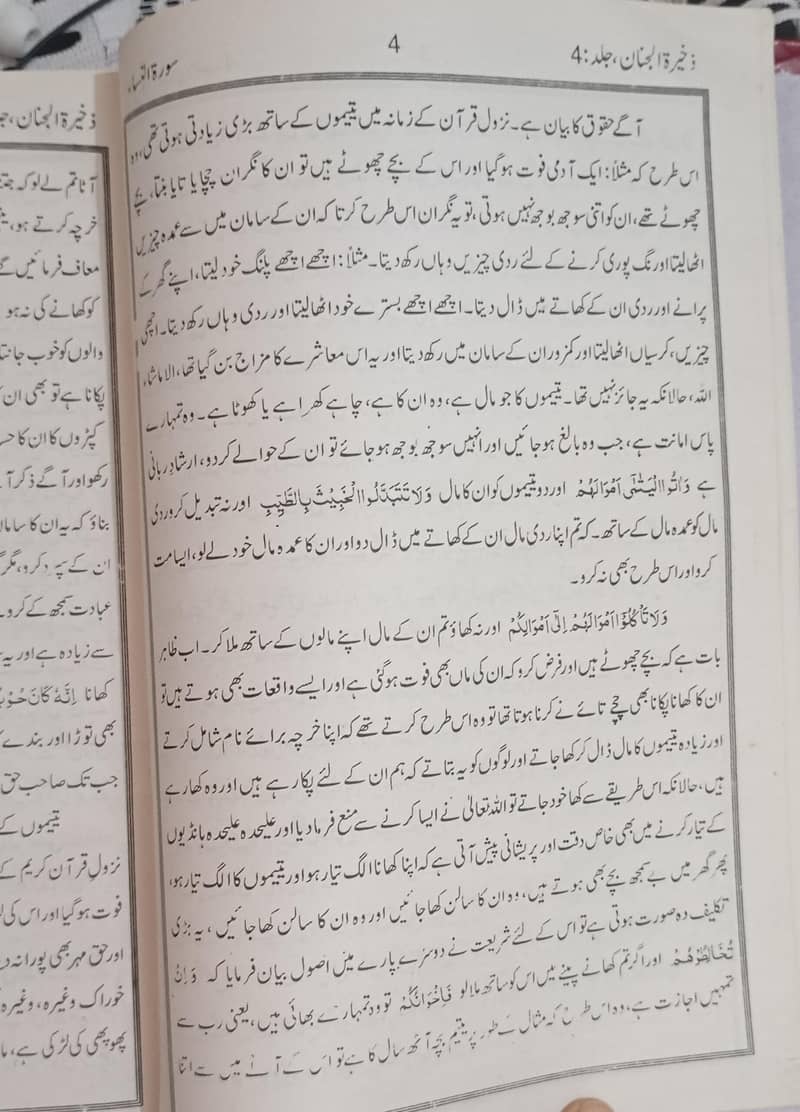 ذخیرۃ الجنان، جلد:4
4
سورۃ النساء
آگے حقوق کا بیان ہے۔ نزول قرآن کے زمانہ میں یتیموں کے ساتھ بڑی زیادتی ہوتی تھی، وہ
اس طرح کہ مثلاً: ایک آدمی فوت ہو گیا اور اس کے بچے چھوٹے ہیں تو ان کا نگران چچا یا تایا بنتا، بچے
چھوٹے تھے، ان کو اتنی سوجھ بوجھ نہیں ہوتی، تو یہ نگران اس طرح کرتا کہ ان کے سامان میں سے عمدہ چیزیں
اٹھا لیتا اور نگ پوری کرنے کے لئے ردی چیزیں وہاں رکھ دیتا۔ مثلاً: اچھے اچھے پلنگ خود لیتا، اپنے گھر کے
پرانے اور ردی ان کے کھاتے میں ڈال دیتا۔ اچھے اچھے بسترے خود اٹھا لیتا اور ردی وہاں رکھ دیتا۔ اچھی
چیزیں، کرسیاں اٹھا لیتا اور کمزور ان کے سامان میں رکھ دیتا اور یہ اس معاشرے کا مزاج بن گیا تھا، الا ماشاء
اللہ، حالانکہ یہ جائز نہیں تھا۔ یتیموں کا جو مال ہے، وہ ان کا ہے، چاہے کھرا ہے یا کھوٹا ہے۔ وہ تمہارے
پاس امانت ہے، جب وہ بالغ ہو جائیں اور انہیں سوجھ بوجھ ہو جائے تو ان کے حوالے کر دو، ارشادِ ربانی
ہے وَاٰتُوا الْیَتٰمٰۤی اَمْوَالَہُمْ اور دو یتیموں کو ان کا مال وَلَا تَتَبَدَّلُوا الْخَبِیْثَ بِالطَّیِّبِ اور نہ تبدیل کرو ردی
مال کو عمدہ مال کے ساتھ۔ کہ تم اپنا ردی مال ان کے کھاتے میں ڈال دو اور ان کا عمدہ مال خود لے لو، ایسا مت
کرو اور اس طرح بھی نہ کرو۔
وَلَا تَاْکُلُوْۤا اَمْوَالَہُمْ اِلٰۤی اَمْوَالِکُمْ اور نہ کھاؤ تم ان کے مال اپنے مالوں کے ساتھ ملا کر۔ اب ظاہر
بات ہے کہ بچے چھوٹے ہیں اور فرض کرو کہ ان کی ماں بھی فوت ہو گئی ہے اور ایسے واقعات بھی ہوتے ہیں تو
ان کا کھانا پکانا بھی چچے تائے نے کرنا ہوتا تھا تو وہ اس طرح کرتے تھے کہ اپنا خرچہ برائے نام شامل کرتے
اور زیادہ یتیموں کا مال ڈال کر کھا جاتے اور لوگوں کو یہ بتاتے کہ ہم ان کے لئے پکا رہے ہیں اور وہ کھا رہے
ہیں، حالانکہ اس طریقے سے کھا خود جاتے تو اللہ تعالیٰ نے ایسا کرنے سے منع فرما دیا اور علیحدہ علیحدہ ہانڈیوں
کے تیار کرنے میں بھی خاص دقت اور پریشانی پیش آتی ہے کہ اپنا کھانا الگ تیار ہو اور یتیموں کا الگ تیار ہو،
پھر گھر میں بے سمجھ بچے بھی ہوتے ہیں، وہ ان کا سالن کھا جائیں اور وہ ان کا سالن کھا جائیں، یہ بڑی
تکلیف دہ صورت ہوتی ہے تو اس کے لئے شریعت نے دوسرے پارے میں اصول بیان فرمایا کہ وَاِنْ
تُخَالِطُوْہُمْ اور اگر تم کھانے پینے میں اس کو ساتھ ملا لو فَاِخْوَانُکُمْ تو وہ تمہارے بھائی ہیں، یعنی رب سے
تمہیں اجازت ہے، وہ اس طرح کہ مثال کے طور پر یتیم بچہ آٹھ سال کا ہے تو اس کے آٹے میں سے اتنا
ذخیرۃ الجنان، جلد
آٹا تم لے لو کہ جتنا
خرچہ کرتے ہو،
معاف فرمائیں گے
کو کھانے کی نہ ہو
والوں کو خوب جانتا
پکانا ہے تو بھی ان
کپڑوں کا ان کا
رکھو اور آگے ذکر آ
بناؤ کہ یہ ان کا سامان
ان کے سپرد کرو، مگر
عبادت سمجھ کے کرو۔
سے زیادہ ہے اور یہ
کھانا اِنَّہٗ کَانَ حُوْبًا
بھی توڑا اور بندے
جب تک صاحب حق
یتیموں کے
نزولِ قرآن کریم کے
فوت ہو گیا اور اس کی
اور حق مہر بھی پورا نہ
خوراک وغیرہ، وغیرہ
پھوپھی کی لڑکی ہے،